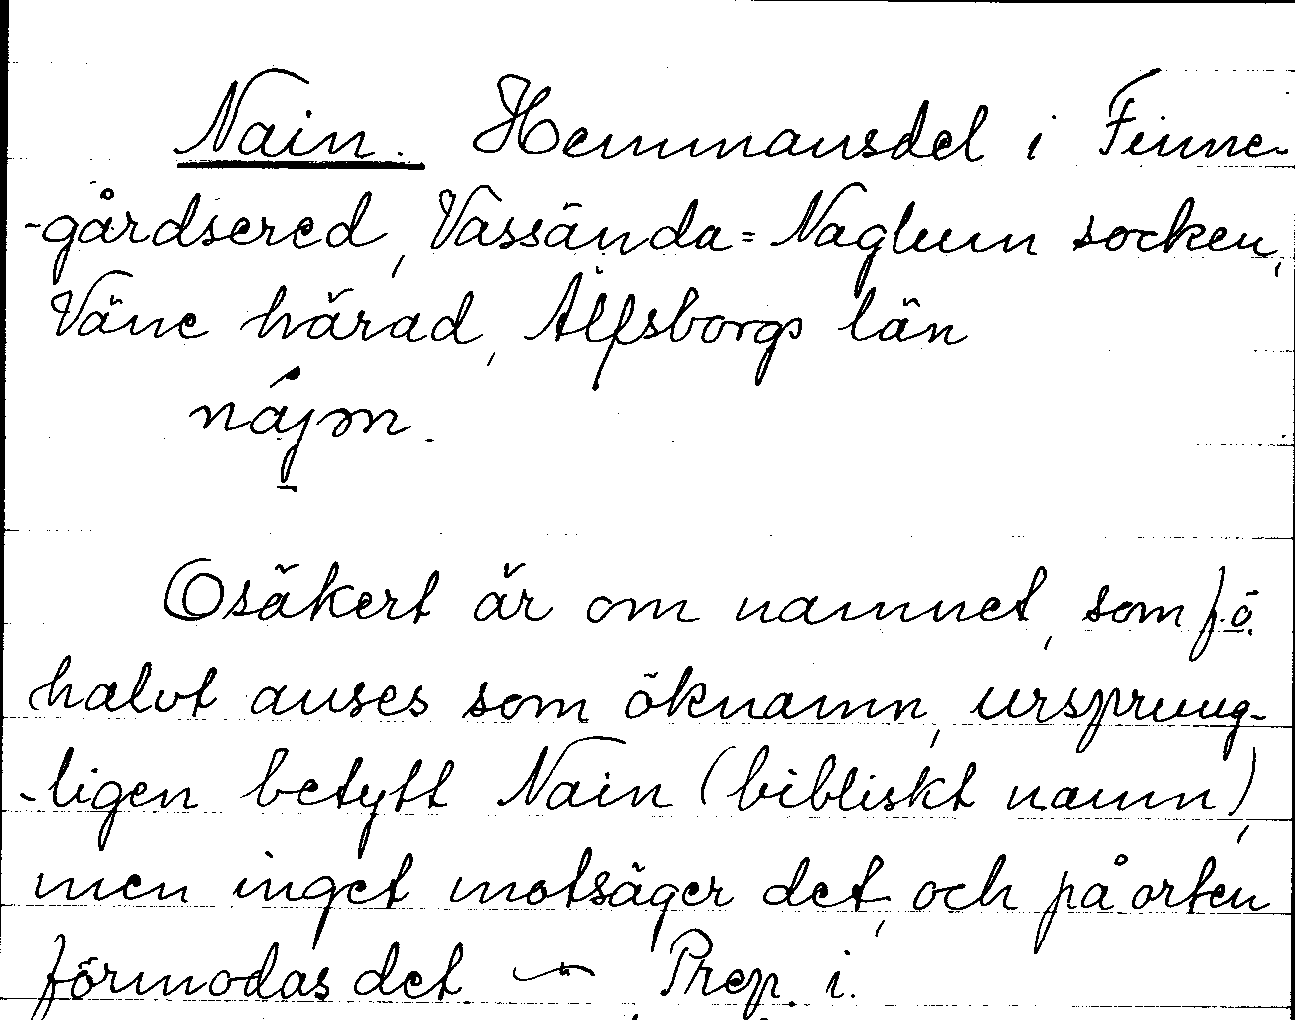 Nain. Hemmansdel i Finne-
-gårdsered, Vassända=Naglum socken,
Väne härad, Älfsborgs län
Osäkert är om namnet, som f.ö.
halvt anses som öknamn, ursprung-
-ligen betytt Nain (bibliskt namn),
men inget motsäger det, och på orten
förmodas det. — Prep. i.